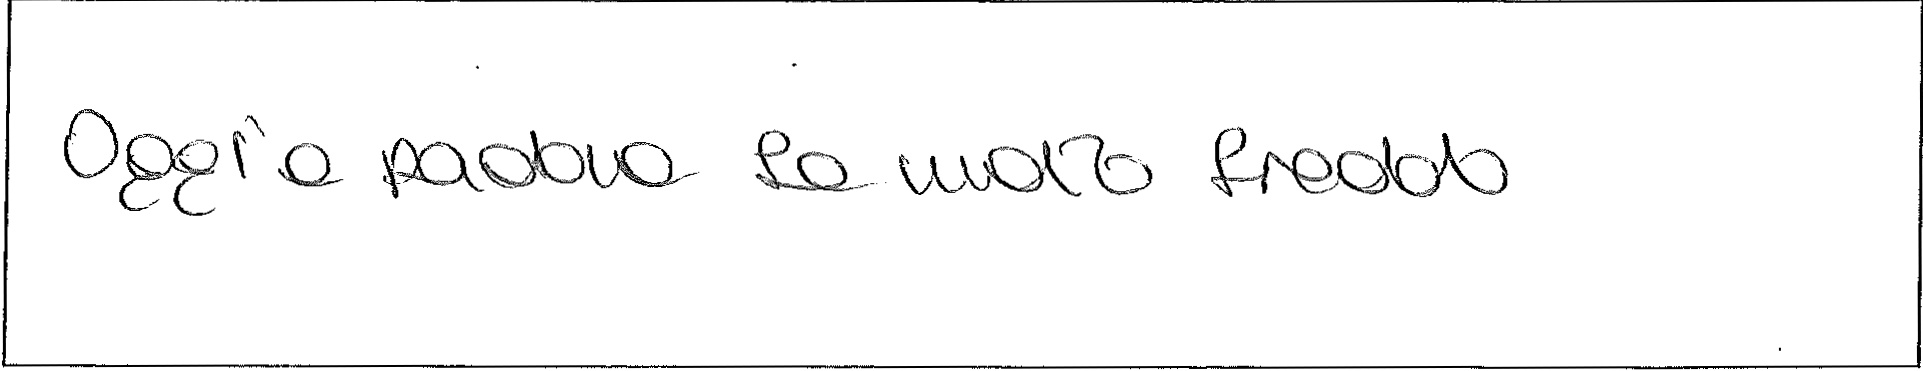 Oggi a padova fa molto freddo